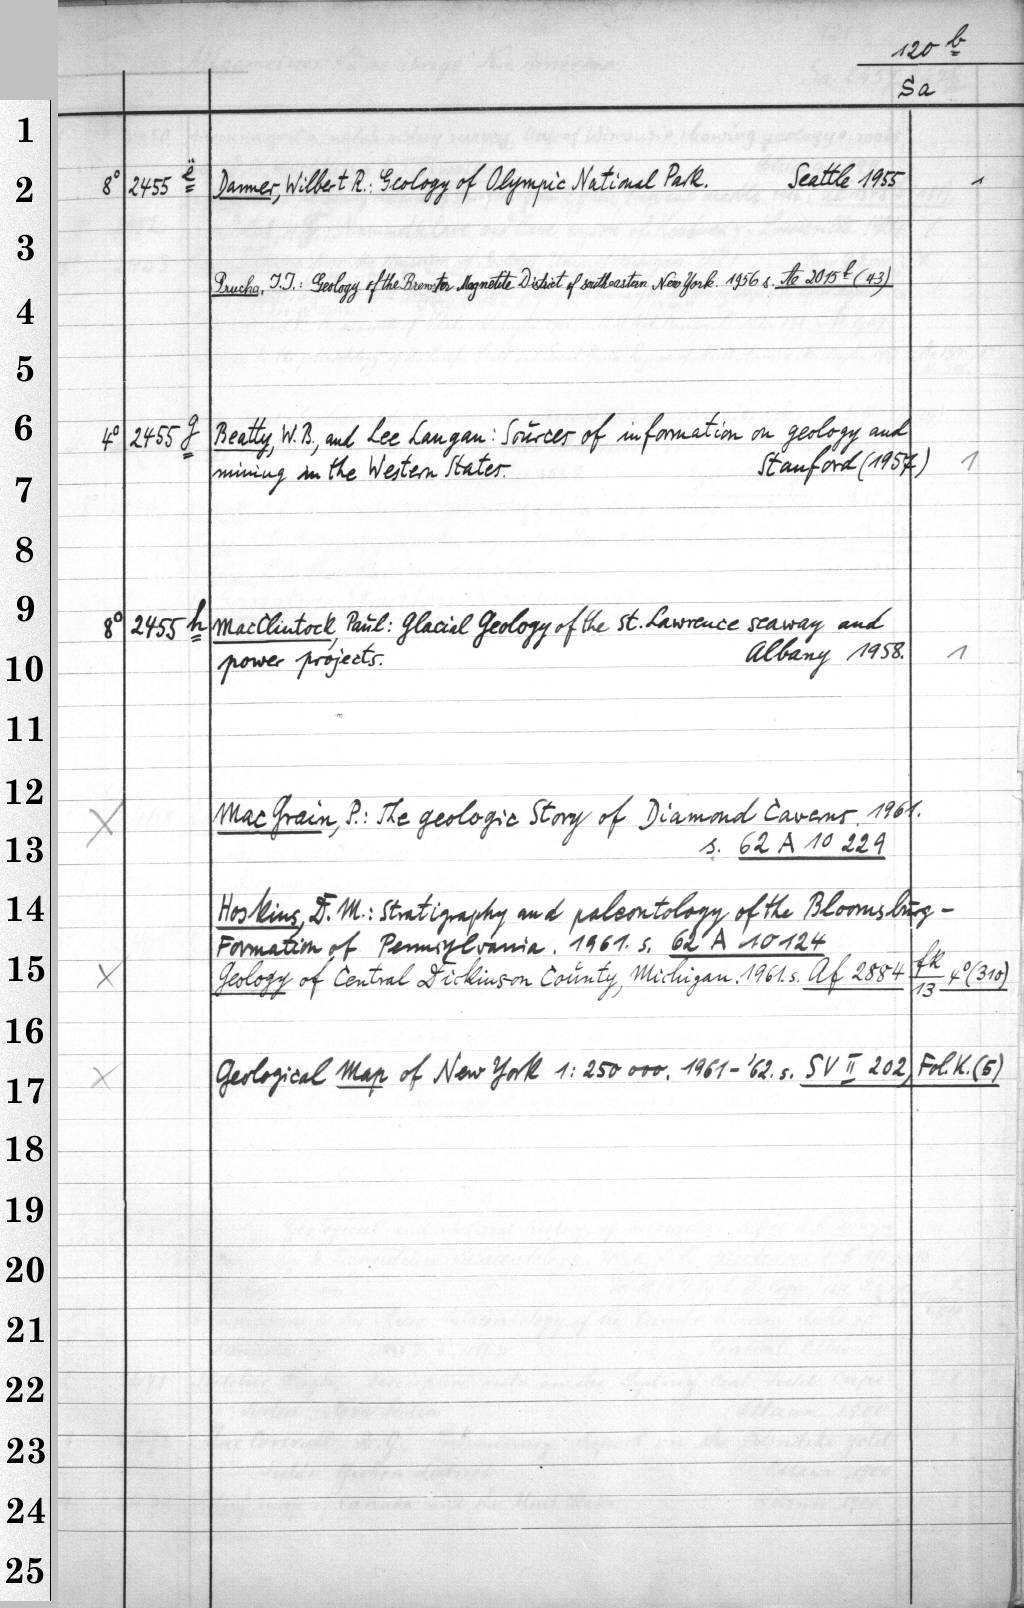 120 b
Sa
1
2
3
4
5
6
7
8
9
10
11
12
13
14
15
16
17
18
19
20
21
22
23
24
25
8° 2455 ë Danner, Wilbert R.: Geology of Olympic National Park. Seattle 1955 1
Prucha, J.J.: Geology of the Brewster Magnetite District of southeastern New York. 1956 s. 2015 (43)
4° 2455 g Beatty, W.B., and Lee Langan: Sources of information on geology and
mining in the Western States. Stanford (1957) 1
8° 2455 h MacClintock, Paul: Glacial Geology of the St. Lawrence seaway and
power projects. Albany 1958. 1
X MacGrain, P.: The geologic Story of Diamond Caverns. 1961.
s. 62 A 10 229
Hoskins, D. M.: Stratigraphy and paleontology of the Bloomsburg-
Formation of Pennsylvania. 1961. s. 62 A 10124
X Geology of Central Dickinson County, Michigan. 1961. s. Af 2884 fk/13 4°(310)
X Geological Map of New York 1:250 000. 1961-'62. s. SV II 202, Fol. K. (5)